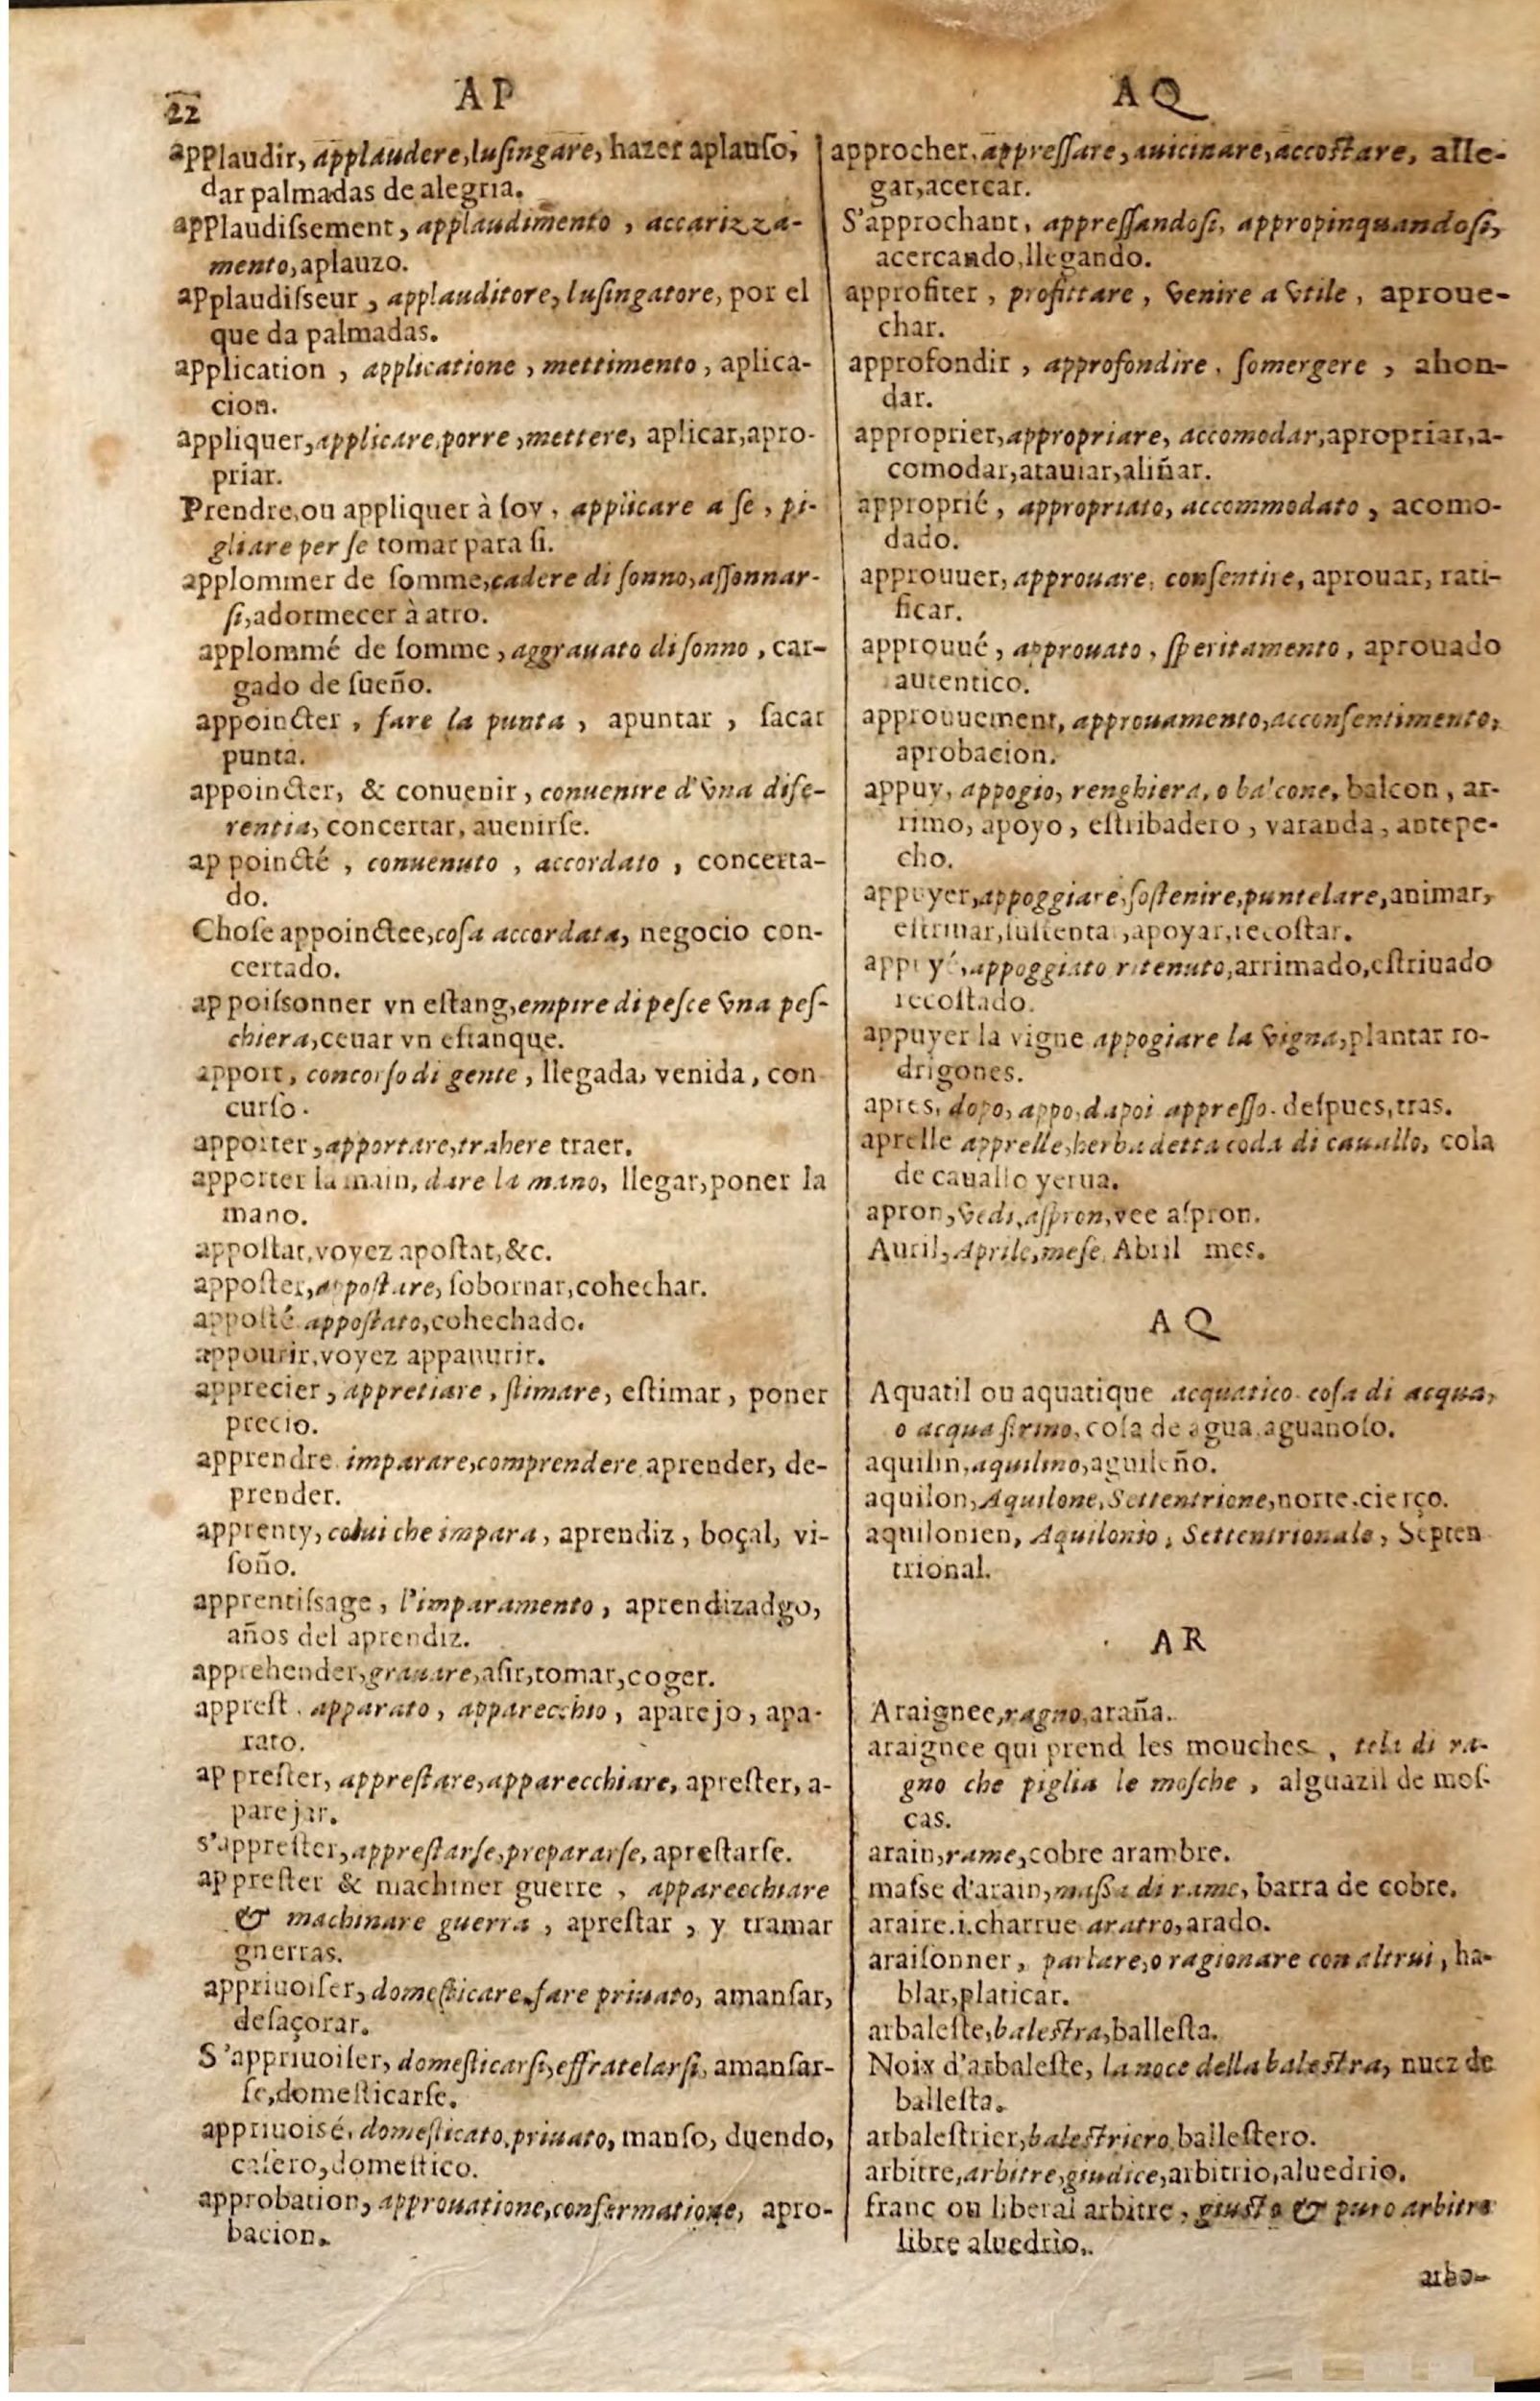 22
AP
applaudir, applaudere, luſingare, hazer aplauſo,
dar palmadas de alegria.
applaudiſsement, applaudimento, accarizza-
mento, aplauzo.
applaudiſseur, applauditore, luſingatore, por el
que da palmadas.
application, applicatione, mettimento, aplica-
cion.
appliquer, applicare, porre, mettere, aplicar, apro-
priar.
Prendre, ou appliquer à ſoy, applicare a ſe, pi-
gliare per ſe tomar para ſi.
applommer de ſomme, cadere di ſonno, aſſonnar-
ſi, adormecer à atro.
applommé de ſomme, aggrauato di ſonno, car-
gado de ſueño.
appoincter, fare la punta, apuntar, ſacar
punta.
appoincter, & conuenir, conuenire d'vna dife-
rentia, concertar, auenirſe.
appoincté, conuenuto, accordato, concerta-
do.
Choſe appoinctee, coſa accordata, negocio con-
certado.
appoiſsonner vn eſtang, empire di peſce vna peſ-
chiera, ceuar vn eſtanque.
apport, concorſo di gente, llegada, venida, con
curſo.
apporter, apportare, trahere traer.
apporter la main, dare la mano, llegar, poner la
mano.
appoſtat, voyez apoſtat, &c.
appoſter, appoſtare, ſobornar, cohechar.
appoſté appoſtato, cohechado.
appourir, voyez appauurir.
apprecier, appretiare, ſtimare, eſtimar, poner
precio.
apprendre imparare, comprendere aprender, de-
prender.
apprenty, colui che impara, aprendiz, boçal, vi-
ſoño.
apprentiſsage, l'imparamento, aprendizadgo,
años del aprendiz.
apprehender, grauare, aſir, tomar, coger.
appreſt. apparato, apparecchio, aparejo, apa-
rato.
appreſter, appreſtare, apparecchiare, apreſter, a-
parejar.
s'appreſter, appreſtarſe, prepararſe, apreſtarſe.
appreſter & machiner guerre, apparecchiare
& machinare guerra, apreſtar, y tramar
gnerras.
appriuoiſer, domeſticare, fare priuato, amanſar,
deſaçorar.
S'appriuoiſer, domeſticarſi, effratelarſi, amanſar-
ſe, domeſticarſe.
appriuoisé, domeſticato, priuato, manſo, duendo,
caſero, domeſtico.
approbation, approuatione, confermatione, apro-
bacion.
AQ
approcher, appreſſare, auicinare, accoſtare, alle-
gar, acercar.
S'approchant, appreſſandoſi, appropinquandoſi,
acercando, llegando.
approfiter, profittare, venire a vtile, aproue-
char.
approfondir, approfondire, ſomergere, ahon-
dar.
approprier, appropriare, accomodar, apropriar, a-
comodar, atauiar, aliñar.
approprié, appropriato, accommodato, acomo-
dado.
approuuer, approuare, conſentire, aprouar, rati-
ficar.
approuué, approuato, ſperitamento, aprouado
autentico.
approuuement, approuamento, acconſentimento,
aprobacion.
appuy, appogio, renghiera, o balcone, balcon, ar-
rimo, apoyo, eſtribadero, varanda, antepe-
cho.
appuyer, appoggiare, ſoſtenire, puntelare, animar,
eſtrinar, ſuſtenta, apoyar, recoſtar.
appuyé, appoggiato ritenuto, arrimado, eſtriuado
recoſtado.
appuyer la vigne appogiare la vigna, plantar ro-
drigones.
apres, dopo, appo, dapoi appreſſo. deſpues, tras.
aprelle apprelle, herba detta coda di cauallo, cola
de cauallo yerua.
apron, vedi, aſpron, vee aſpron.
Auril, Aprile, meſe, Abril mes.
AQ
Aquatil ou aquatique acquatico coſa di acqua,
o acqua ſirino, coſa de agua, aguanoſo.
aquilin, aquilino, aguileño.
aquilon, Aquilone, Settentrione, norte, cierço.
aquilonien, Aquilonio, Settentrionale, Septen
trional.
AR
Araignee, ragno, araña.
araignee qui prend les mouches, tela di ra-
gno che piglia le moſche, alguazil de moſ-
cas.
arain, rame, cobre arambre.
maſse d'arain, maſſa di rame, barra de cobre.
araire. i. charrue aratro, arado.
araiſonner, parlare, o ragionare con altrui, ha-
blar, platicar.
arbaleſte, baleſtra, balleſta.
Noix d'arbaleſte, la noce della baleſtra, nuez de
balleſta.
arbaleſtrier, baleſtriero, balleſtero.
arbitre, arbitre, giudice, arbitrio, aluedrio.
franc ou liberal arbitre, giuſto & puro arbitro
libre aluedrio.
arbo-